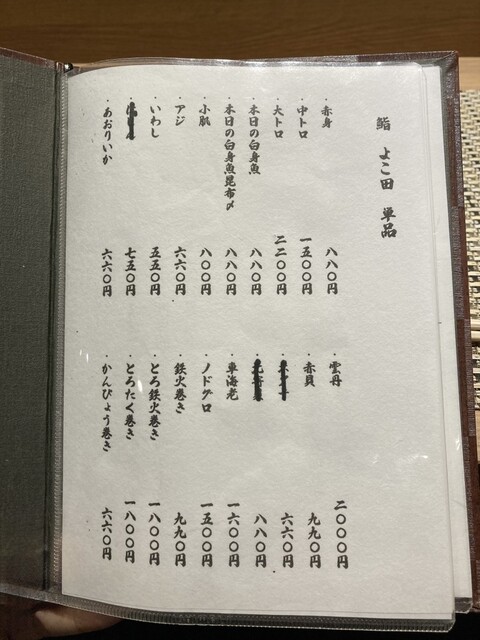 鮨 よこ田 単品
・赤身 八八〇円
・中トロ 一五〇〇円
・大トロ 二二〇〇円
・本日の白身魚 八八〇円
・本日の白身魚昆布〆 八八〇円
・小肌 八〇〇円
・アジ 六六〇円
・いわし 五五〇円
・ 七五〇円
・あおりいか 六六〇円
・雲丹 二〇〇〇円
・赤貝 九九〇円
・ 六六〇円
・ 八八〇円
・車海老 一六〇〇円
・ノドグロ 一五〇〇円
・鉄火巻き 九九〇円
・とろ鉄火巻き 一八〇〇円
・とろたく巻き 一八〇〇円
・かんぴょう巻き 六六〇円